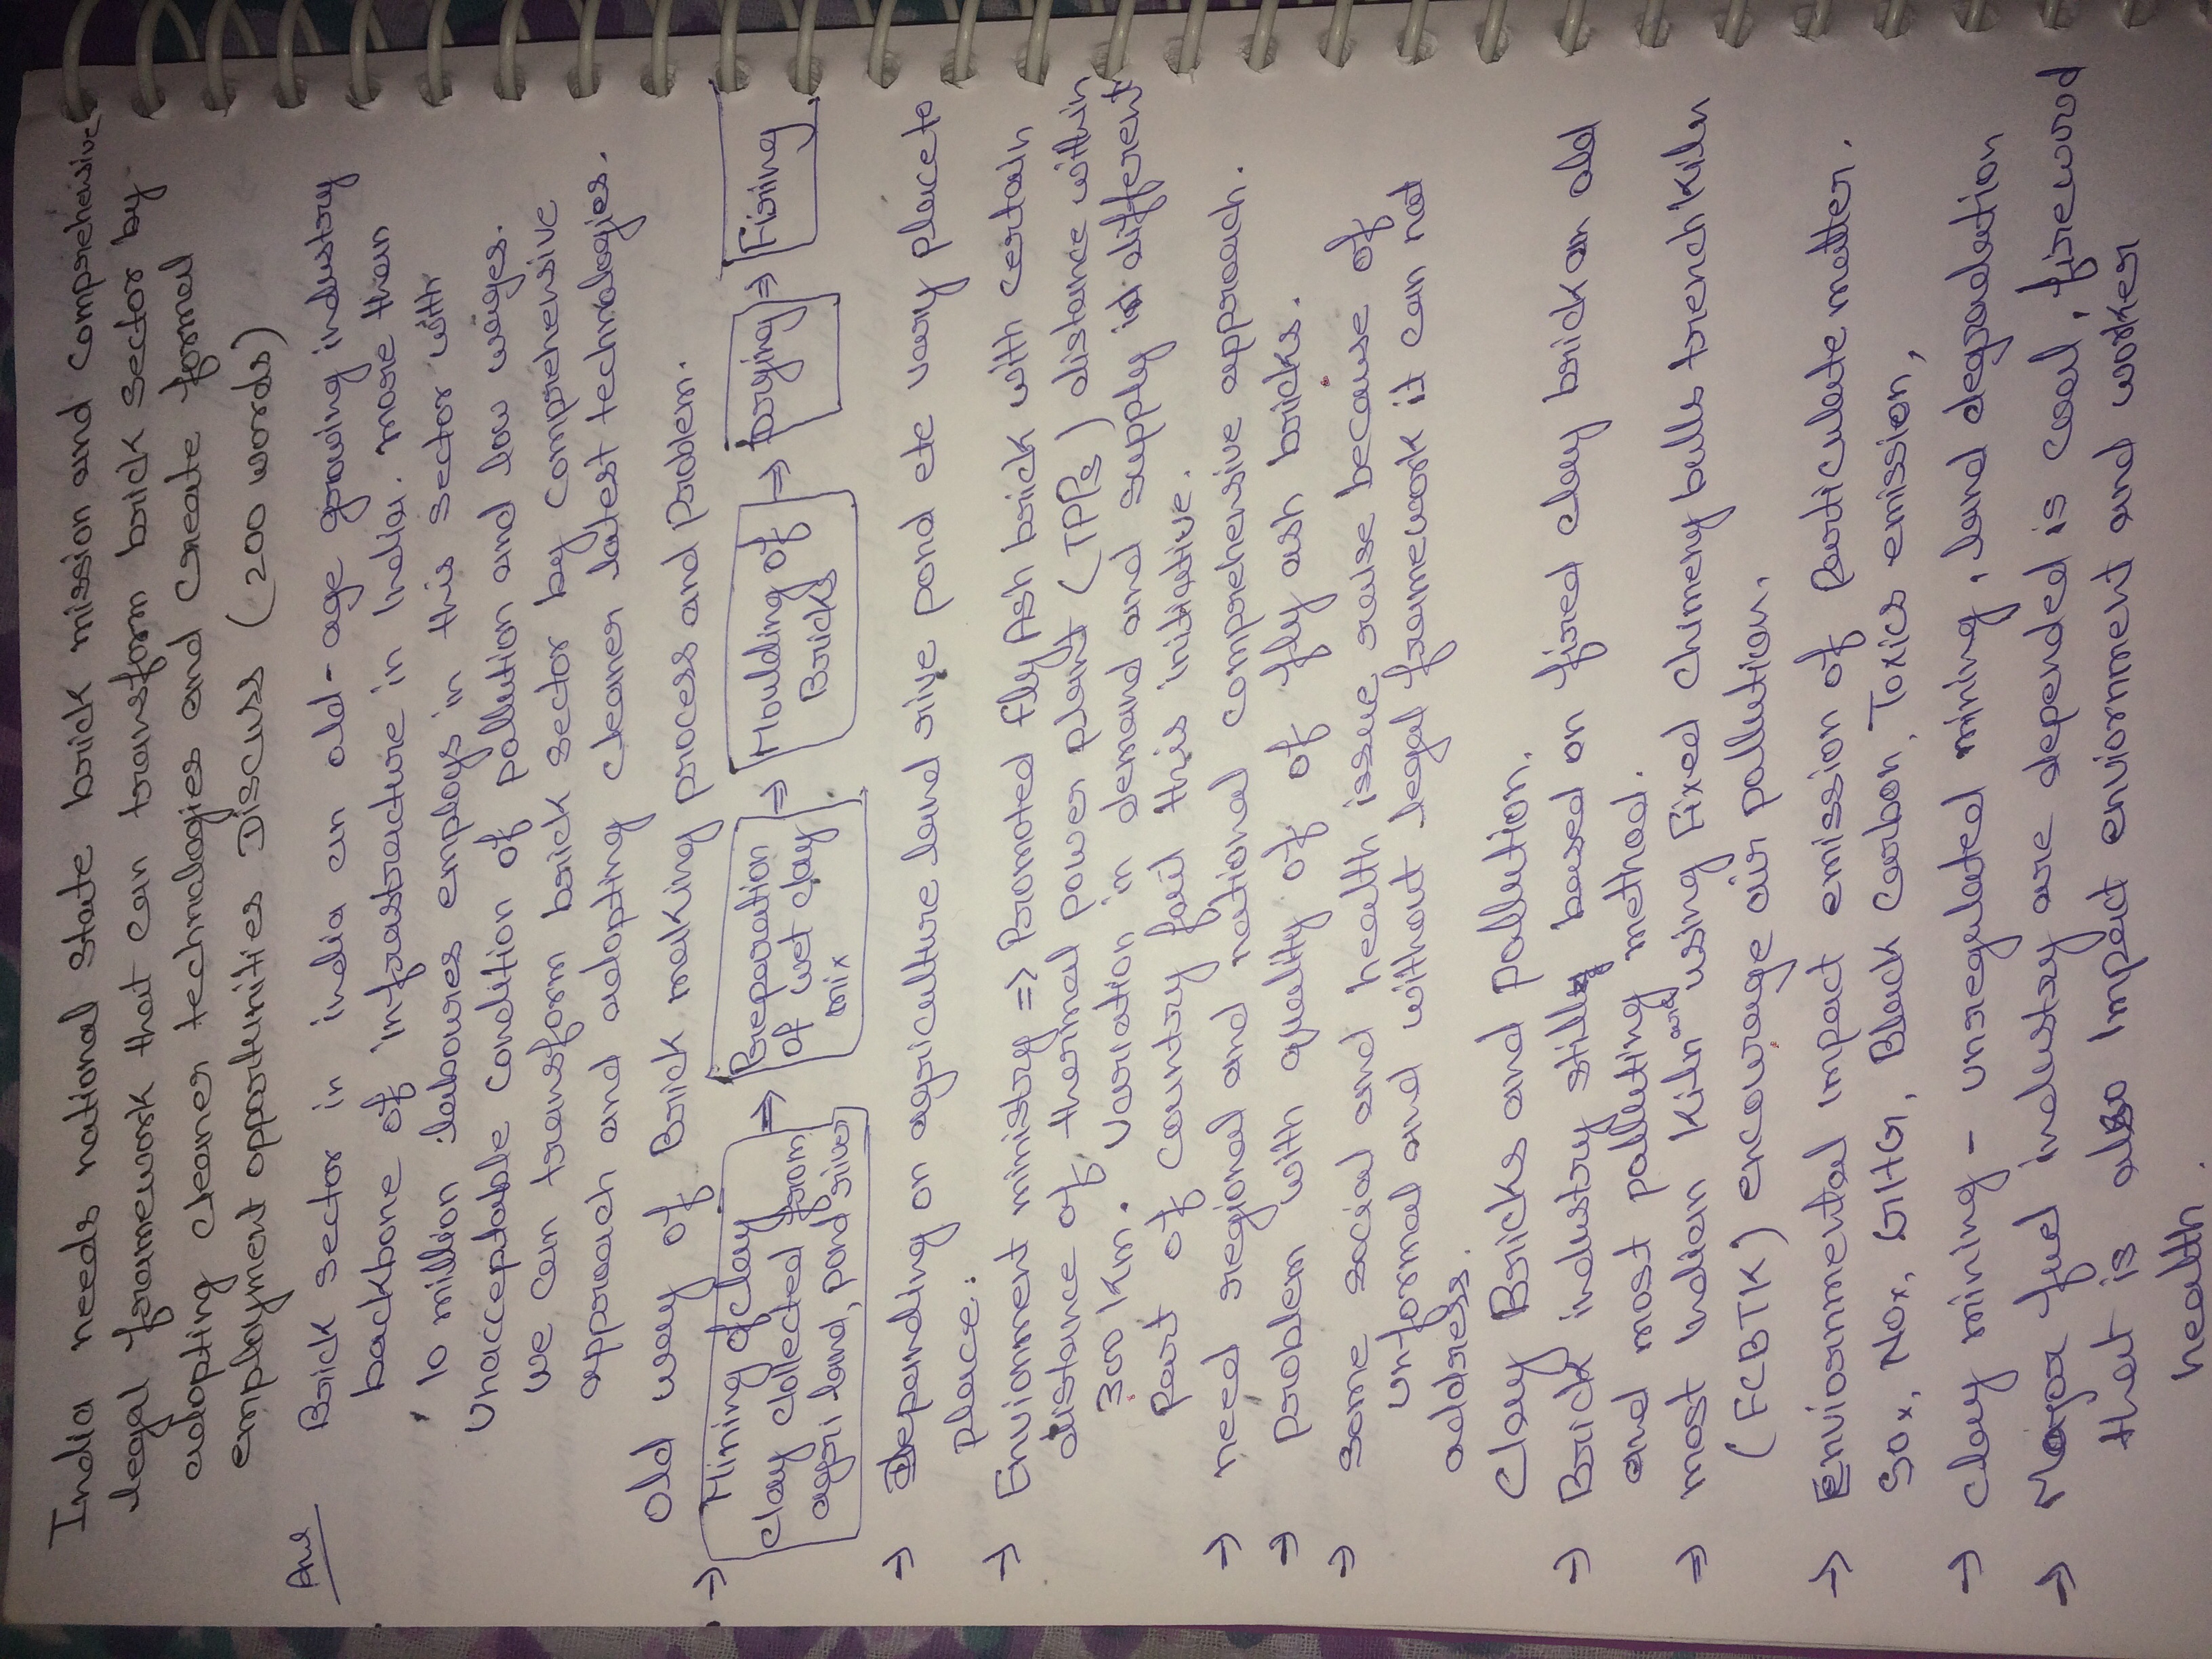 India needs national state brick mission and comprehensive
legal framework that can transform brick sector by
adopting cleaner technologies and create formal
employment opportunities Discuss (200 words)
Ans Brick sector in india an old-age growing industry
backbone of infrastructure in India. more than
10 million laboures employs in this sector with
Unacceptable condition of pollution and low wages.
we can transform brick sector by comprehensive
approach and adopting cleaner latest technologies.
Old way of Brick making process and problem.
→ Mining of clay clay collected from agri land, pond river ⇒ Preparation of wet clay mix ⇒ Moulding of Bricks ⇒ Drying ⇒ Firing
→ Depending on agriculture land rive pond etc vary place to
place.
→ Envionment ministry => Promoted fly Ash brick with certain
distance of thermal power plant (TPPs) distance within
300 km. variation in demand and supply in different
part of country fail this initiative.
→ need regional and national comprehensive approach.
→ problem with quality of of fly ash bricks.
→ some social and health issue raise because of
unformal and without legal framework it can not
address.
Clay Bricks and pollution.
→ Brick industry still based on fired clay brick an old
and most polluting method.
⇒ most Indian kiln and using Fixed chimeny bulls trench kiln
(FCBTK) encourage air pollution.
→ Enviornmental impact emission of particulate matter.
SOx, NOx, GHG, Black Carbon, Toxics emission,
→ clay mining - unregulated mining, land degradation
→ Major fuel industry are depended is coal, firewood
that is also Impact enviornment and worker
health.